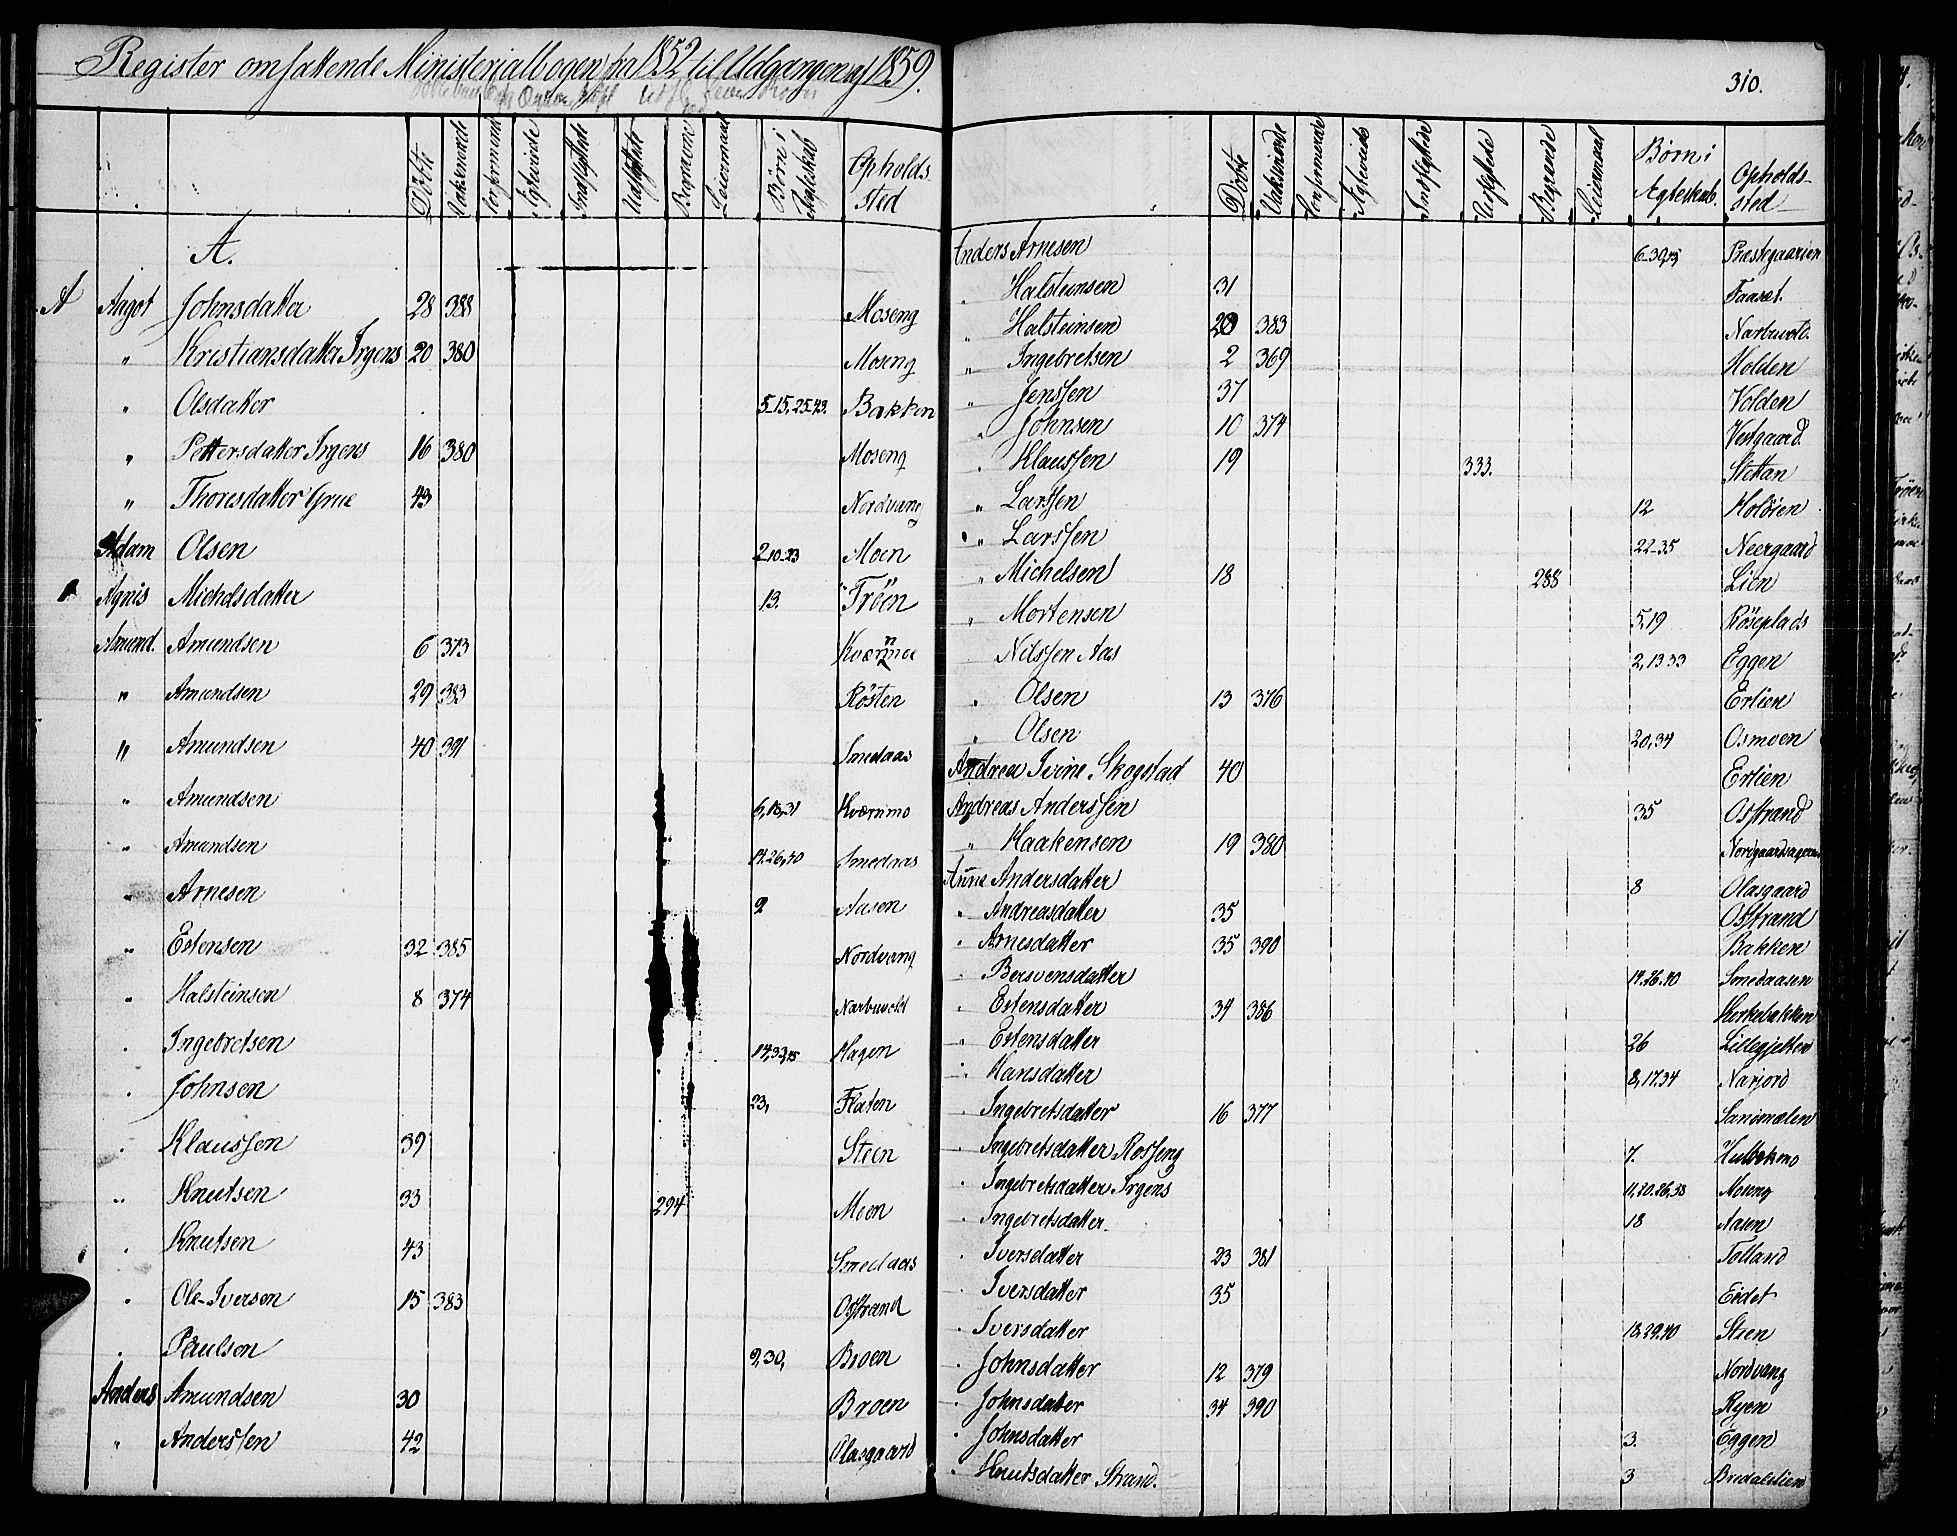 Register omfattende Ministerialbogen fra 1852 til Udgangen af 1859.
Döbte Vaksinerede Confirmerede Ægteviede Indflyttede Udflyttede Begravne Leiermaal Börn i Ægteskab Opholds-sted
A.
A Aagot Johnsdatter 28 388 Moseng
" Kristiansdatter Irgens 20 380 Moseng
" Olsdatter 5-15, 25-43. Bakken
" Pettersdatter Irgens 16 380 Moseng
" Thoresdatter Grue 43 Nordvang
Adam Olsen 2 10-23 Moen
Agnis Michelsdatter 13. Tröen
Amund. Amundsen 6 373 Kværnmoe
" Amundsen 29 383 Rösten
" Amundsen 40 391 Smedaas
" Amundsen 6, 18, 31 Kværnmo
" Amundsen 14. 26, 40 Smedaas
" Arnesen 2 Aasen
" Estensen 32 385 Nordvang
" Halsteinsen 8 374 Narbuvold
" Ingebretsen 14, 33, 45 Hagen
" Johnsen 23, Flaten
" Klaussen 39 Steen
" Knutsen 33 294 Moen
" Knutsen 43 Smedaas
" Ole-Iverson 15 383 Osstrand
" Paulson 9, 30, Broen
Anders Amundsen 30 Broen
" Anderssen 42 Olasgaard
310.
Döbte Vaksinerede Confirmerede Ægteviede Indflyttede Udflyttede Begravede Leiermaal Börn i Ægteskab. Opholds-sted
Anders Arnesen Præstegaarden
" Halsteinsen 31 Faaset.
" Halsteinsen 20 383 Narbuvold.
" Ingebretsen 2 369 Holden
" Jenssen 37 Volden
" Johnsen 10 374 Vestgaard
" Klaussen 19 333. Stettan
" Larssen 12 Holöien
" Larssen 22-35 Neergaard
" Michelsen 18 288 Lien
" Mortensen 5, 19 Röseplads
Nilssen Aas 2, 13 33 Eggen
" Olsen 13 376 Erlien
" Olsen 20, 34 Osmoen
Andrea Ivine Skogstad 40 Erlien
Andreas Anderssen 35 Osstrand
" Haakensen 19 380
Anne Andersdatter 8 Olasgaard
" Andreasdatter 35 Osstrand
" Arnesdatter 35 390 Bakken
" Bersvensdatter 14. 26. 40 Smedaasen
" Estensdatter 34 386 Kirkebakken
" Estensdatter 26 Lillegjelten
" Hansdatter 8, 17. 34 Narjord
" Ingebretsdatter 16 377 Sandmælen
" Ingebretsdatter Rosseng 7. Hulbekmo
" Ingebretsdatter Irgens 11, 20. 26, 38 Moseng
" Ingebretsdatter. 18 Aasen
" Iversdatter 23 381 Tolland
" Iversdatter 35 Eidet
" Iversdatter 18, 29. 40 Steen
" Johnsdatter 12 379 Nordvang
" Johnsdatter 34 390 Ryen
" Johnsdatter 3. Eggen
" Knutsdatter Strand. 3 Bredalslien